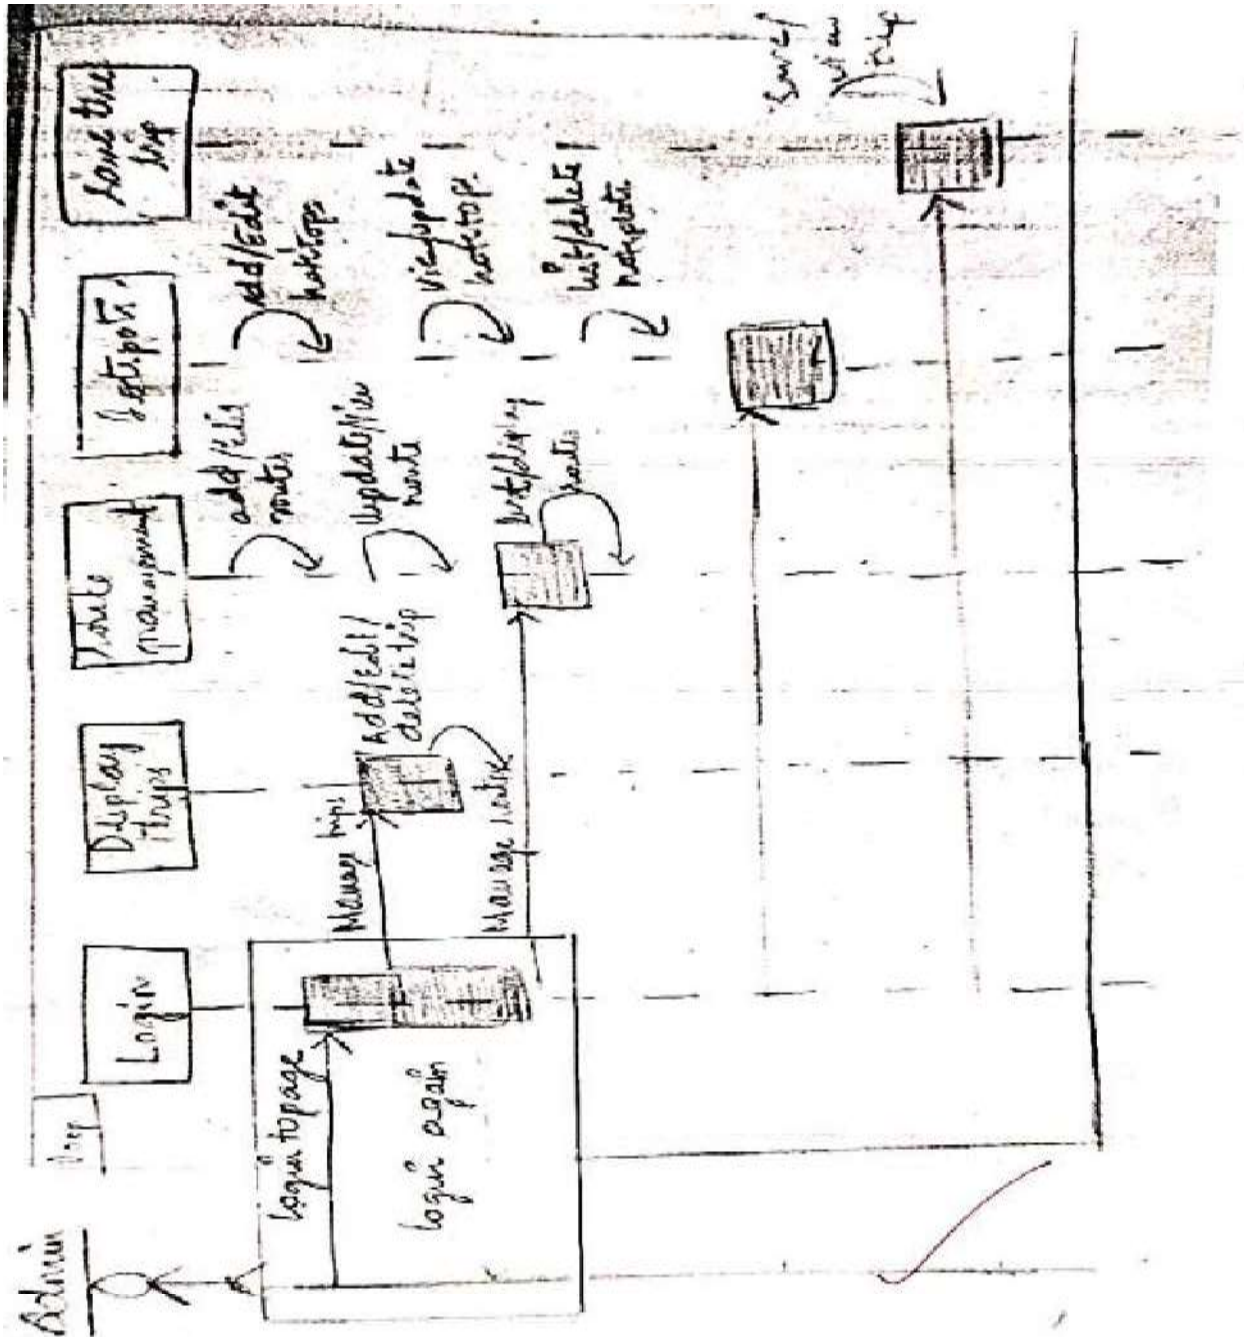 Admin
Login
Display
Trips
Route
management
Save the
trip
login to page
login again
Manage trips
Add/Edit/
delete trip
Manage routes
add/Edit
routes
update/view
route
list/display
routes
add/Edit
hotstops
view/update
list/delete
view
trip